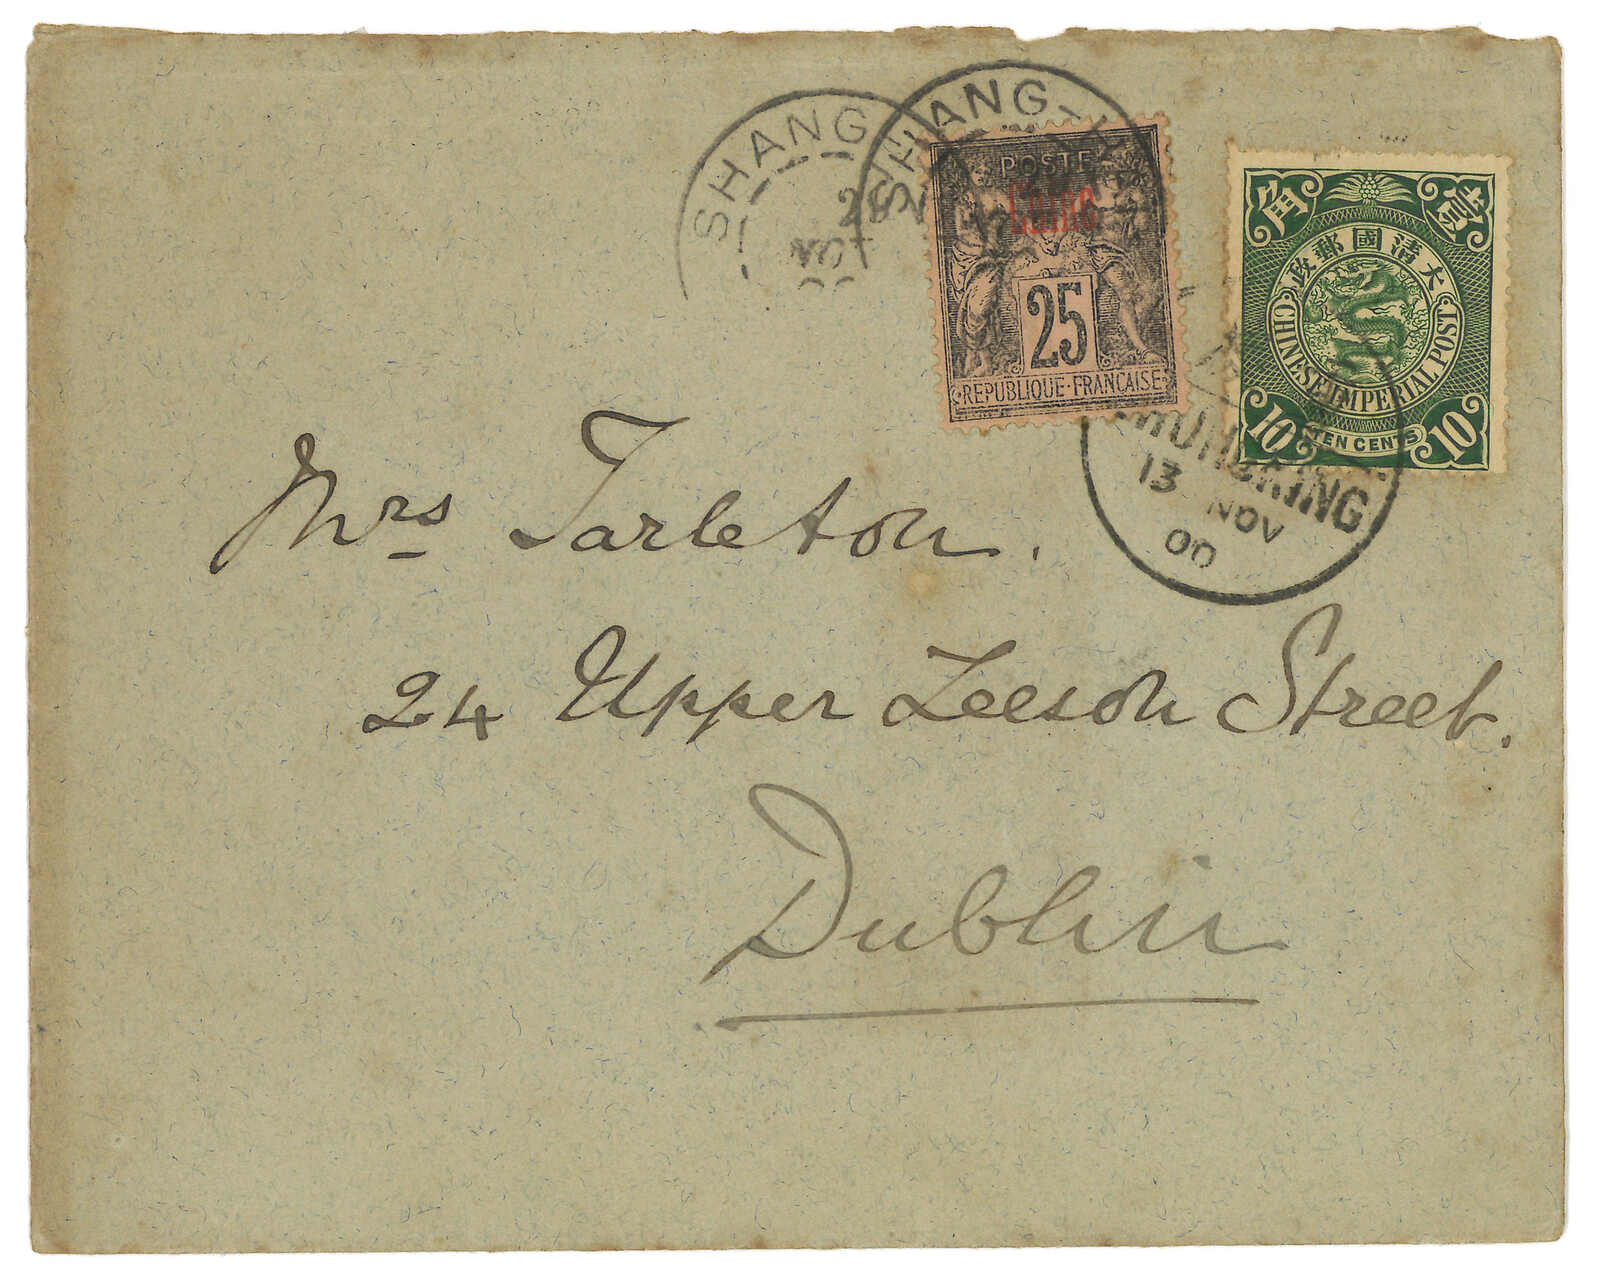 SHANG
28 N
NOV
00
SHANG-H
POSTE
Chine
25
REPUBLIQUE·FRANÇAISE
角 壹
大清國郵政
CHINESE IMPERIAL POST
10 TEN CENTS 10
CHUNGKING
13 NOV
00
Mrs Tarleton.
24 Upper Leeson Street.
Dublin